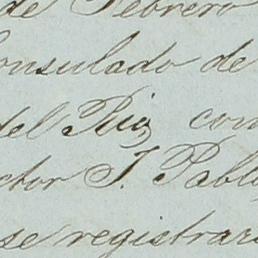 de Febrero
onsulado de
del Ruiz con
ctor J. Pablo
se registrar